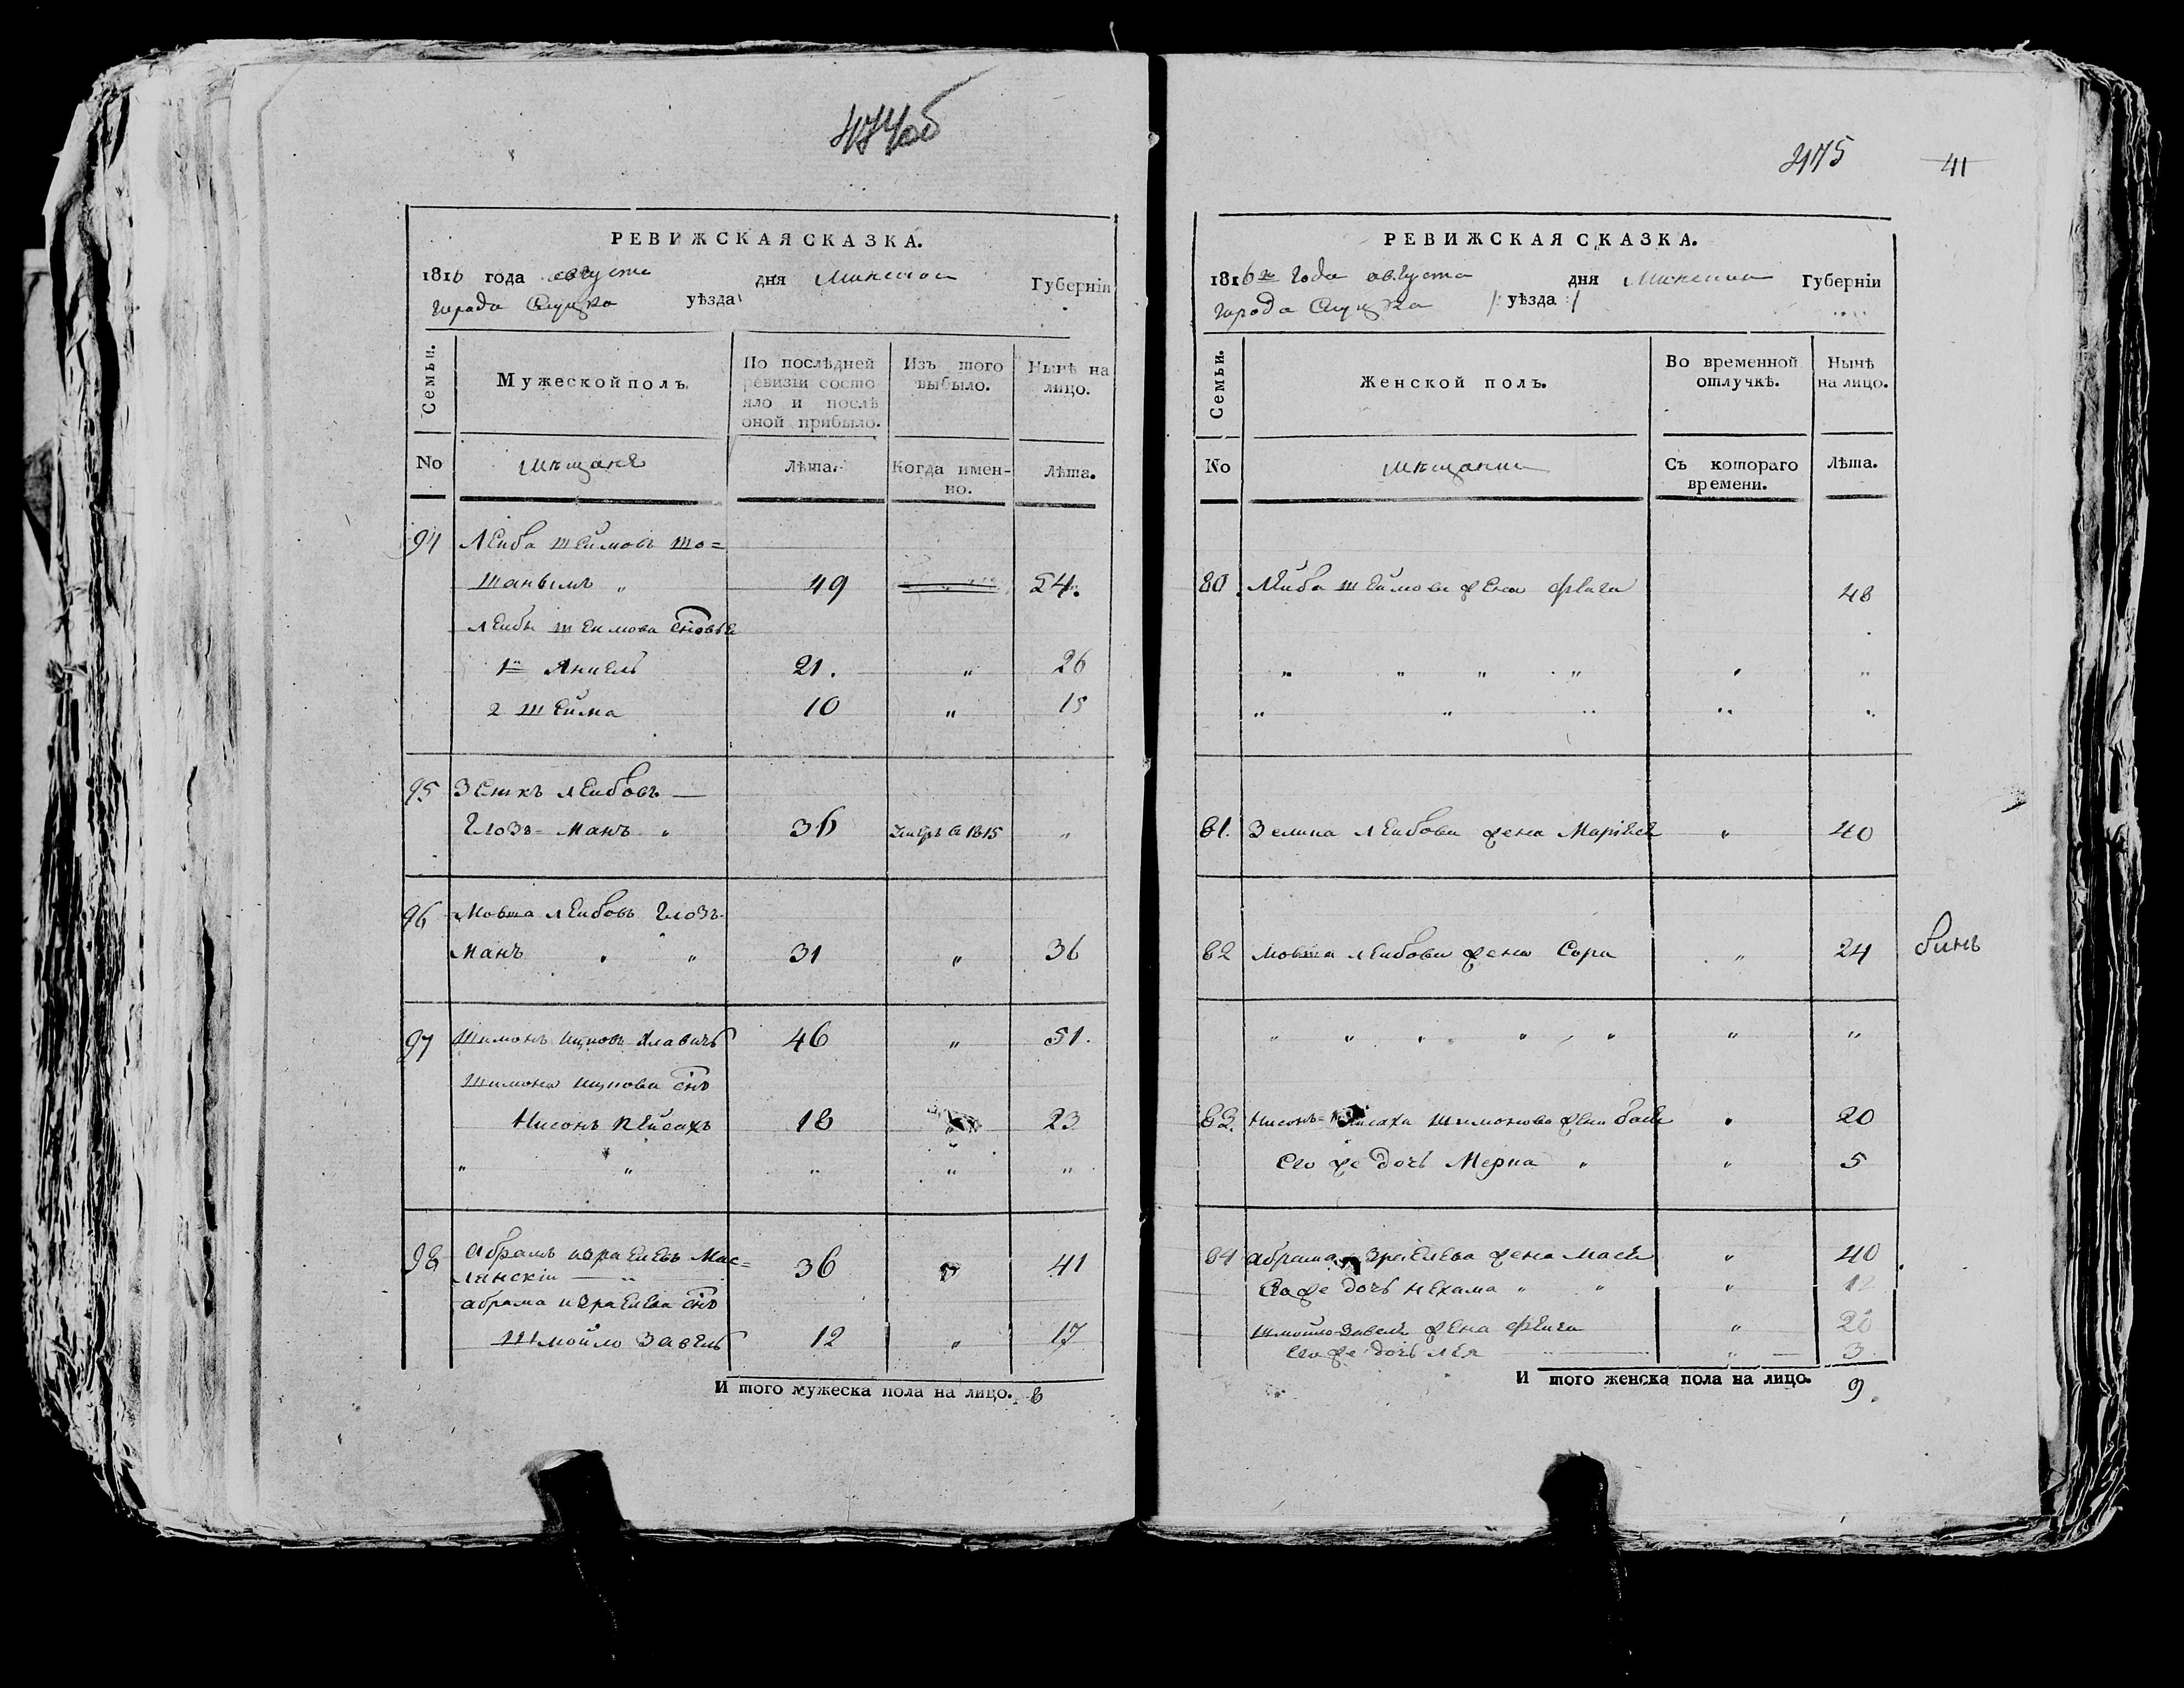 474об
РЕВИЖСКАЯ СКАЗКА.
1816 года августа дня Минской Губерніи
города Слуцка уѣзда
Семьи.
Мужеской полъ.
По послѣдней ревизіи состояло и послѣ оной прибыло.
Изъ того выбыло.
Нынѣ на лицо.
No
мещане
Лѣта.
Когда именно.
Лѣта.
94 Леиба Шеимовъ То=
49 54.
Леибы Шеимова сновья
1й Янкель 21. " 26
2 Шеима 10 " 15
95 Леибовъ —
Глозъ=Манъ " 36 1815 "
96 Мовша Леибовъ Глозъ-
Манъ " " 31 " 36
97 Шимонъ Ицковъ Хлавичъ 46 " 51.
Шимона Ицкова снъ
Нисонъ Пейсахъ 18 " 23
" " " " "
98 Абрамъ Израелевъ Мас=
линскіи — " 36 " 41
Абрама Израелева снъ
Шмойло Завель 12 " 17
И того мужеска пола на лицо. 8
475 41
РЕВИЖСКАЯ СКАЗКА.
1816го года августа дня Минской Губерніи
города Слуцка /: уѣзда :/
Семьи.
Женской полъ.
Во временной отлучкѣ.
Нынѣ на лицо.
No
мещанки
Съ котораго времени.
Лѣта.
80. Леиба Шеимова жена Фейга 48
" " " " " "
" " " " "
81. Леибова жена " 40
82 Мовша Леибова жена Сора " 24
" " " " " " "
83. Нисонъ=Пейсаха Шимонова жена Бася " 20
Его же дочь Мерка " " 5
84 Абрама Израелева жена Мася " 40
Его же дочь Нехама " " " 12
Шмойло-Завеля жена Фейга " 20
Его же дочь Лея — " — 3
И того женска пола на лицо. 9.